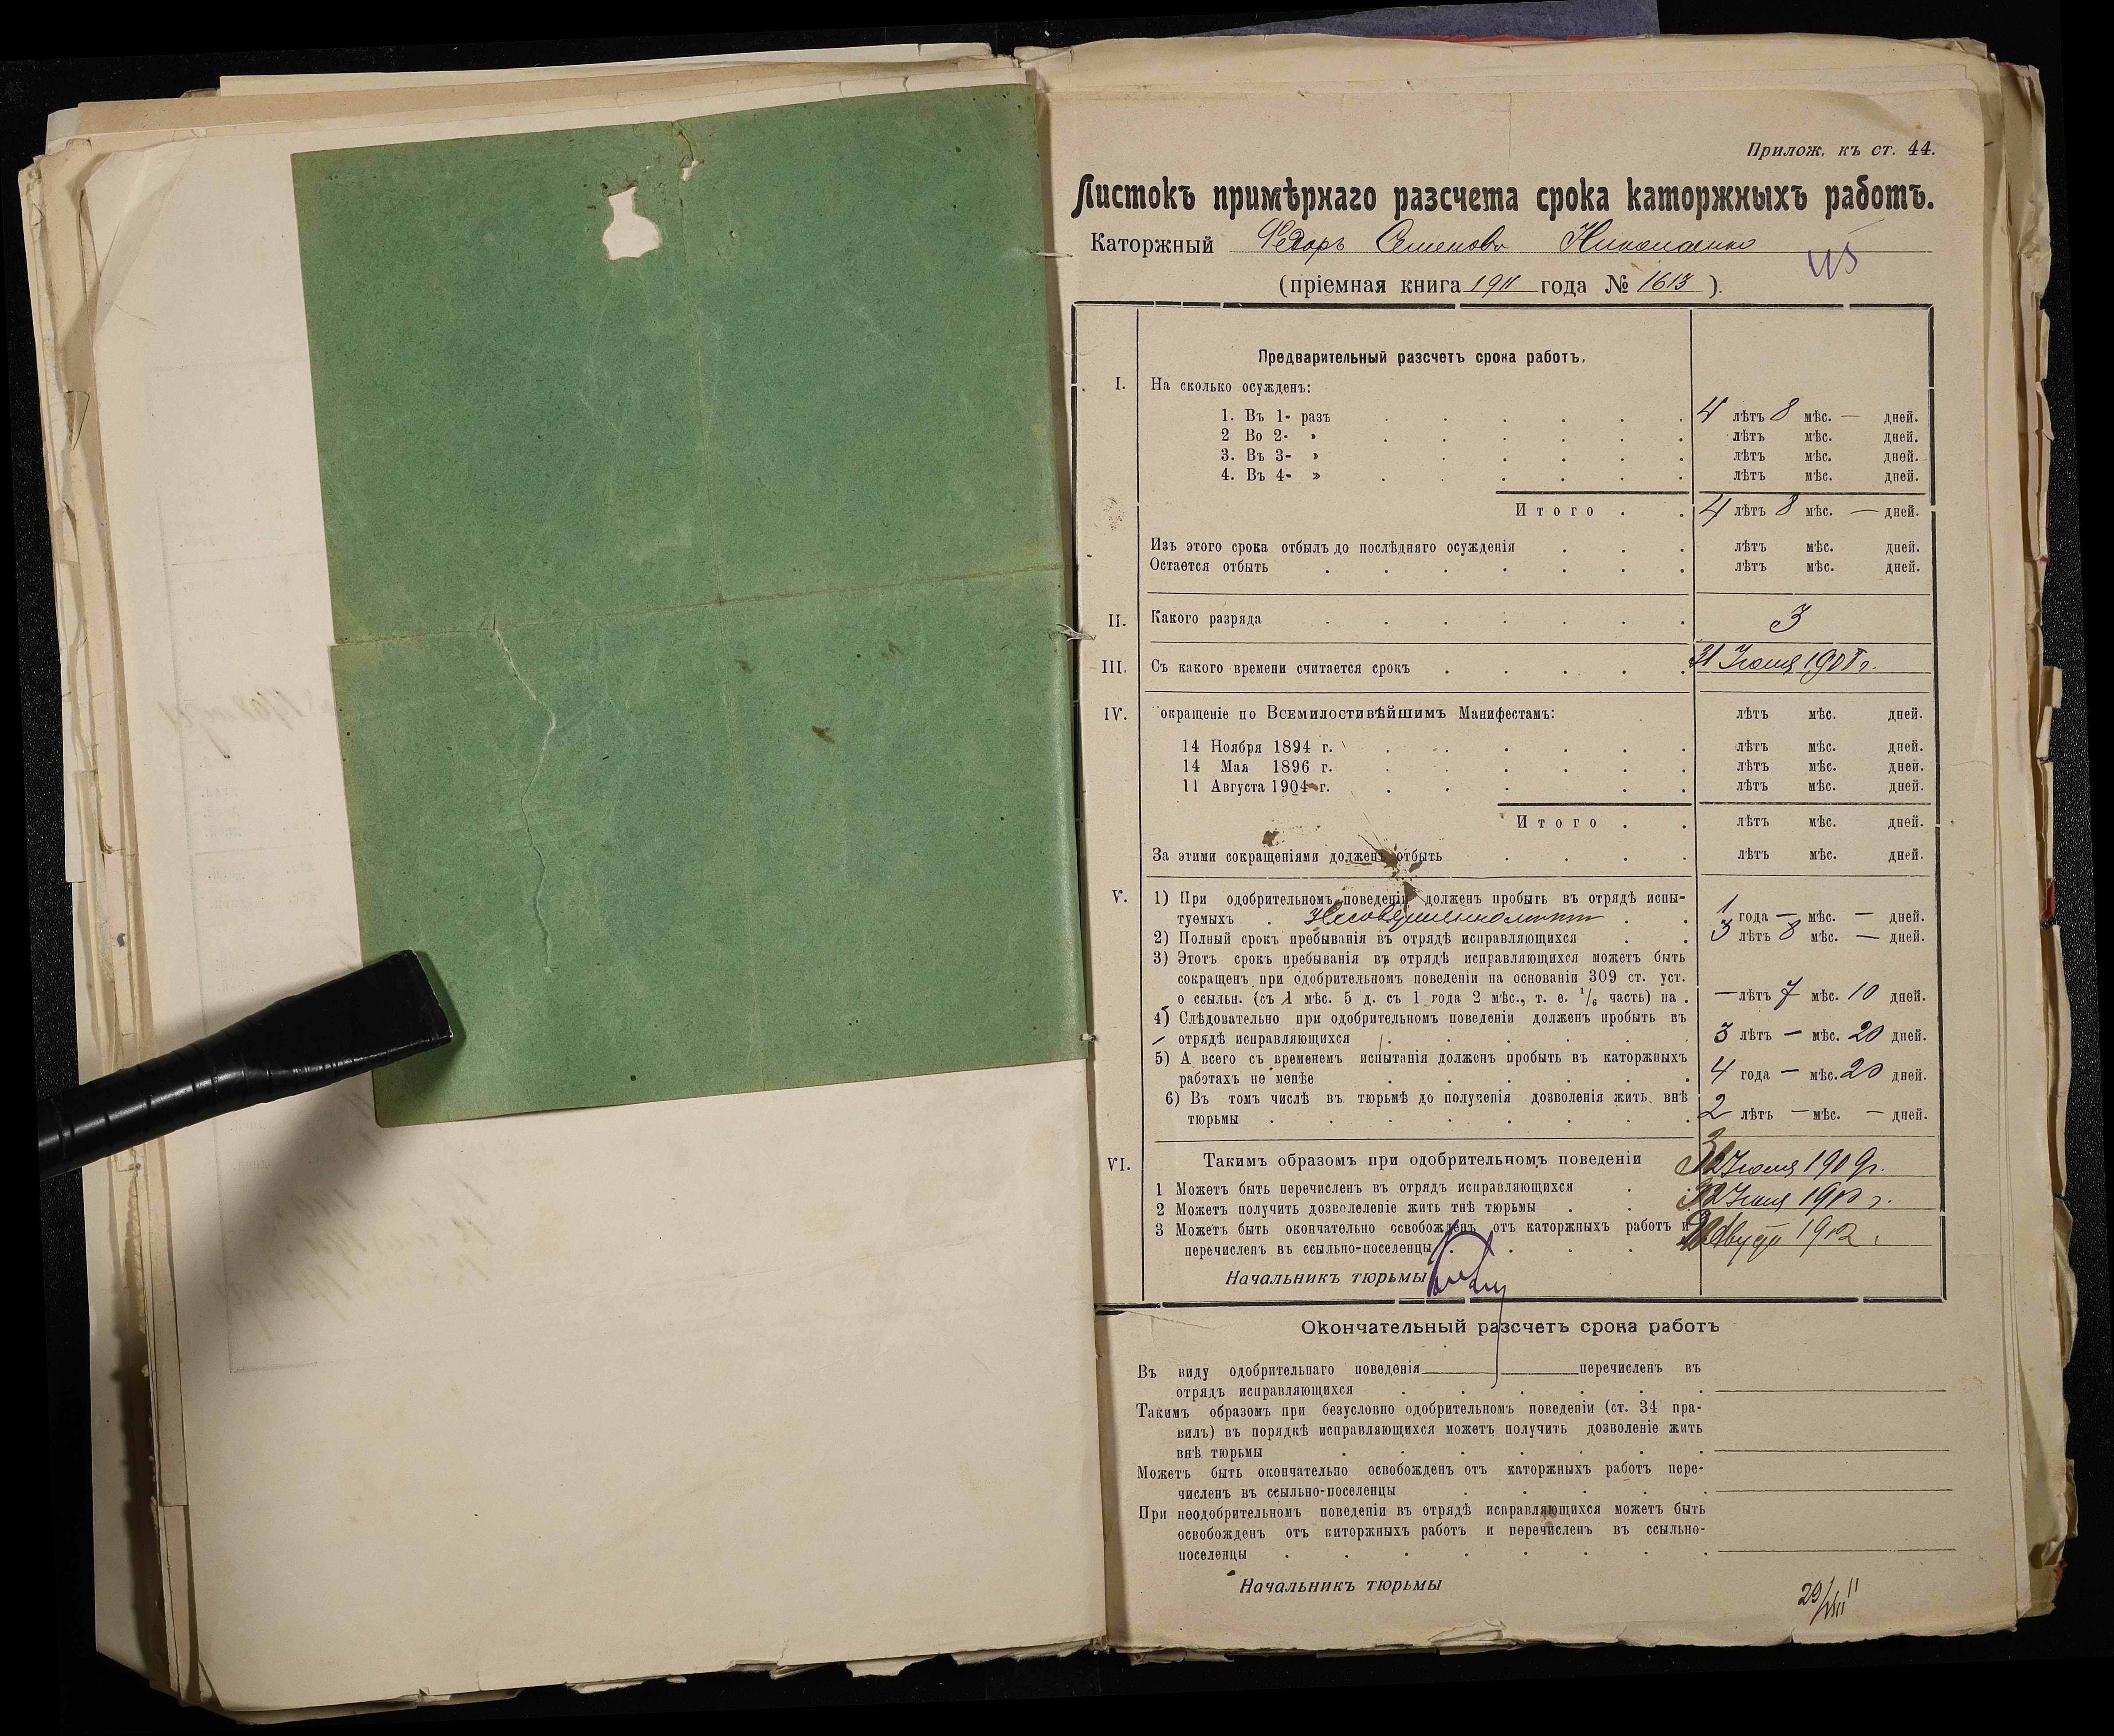 Прилож. къ ст. 44.
Листокъ примѣрнаго разсчета срока каторжныхъ работъ.
Каторжный Федоръ Семеновъ
115
(пріемная книга 1911 года № 1613).
Предварительный разсчетъ срока работъ.
I. На сколько осужденъ:
1. Въ 1- разъ 4 лѣтъ 8 мѣс. — дней.
2 Во 2- » лѣтъ мѣс. дней.
3. Въ 3- » лѣтъ мѣс. дней.
4. Въ 4- » лѣтъ мѣс. дней.
Итого 4 лѣтъ 8 мѣс. — дней.
Изъ этого срока отбылъ до послѣдняго осужденія лѣтъ мѣс. дней.
Остается отбыть лѣтъ мѣс. дней.
II. Какого разряда 3
III. Съ какого времени считается срокъ 31 Іюля 1908 г.
IV. окращеніе по Всемилостивѣйшимъ Манифестамъ: лѣтъ мѣс. дней.
14 Ноября 1894 г. лѣтъ мѣс. дней.
14 Мая 1896 г. лѣтъ мѣс. дней.
11 Августа 1904 г. лѣтъ мѣс. дней.
Итого лѣтъ мѣс. дней.
За этими сокращеніями долженъ отбыть лѣтъ мѣс. дней.
V. 1) При одобрительномъ поведеніи долженъ пробыть въ отрядѣ испы-
туемыхъ 1 года — мѣс. — дней.
2) Полный срокъ пребыванія въ отрядѣ исправляющихся 3 лѣтъ 8 мѣс. — дней.
3) Этотъ срокъ пребыванія въ отрядѣ исправляющихся можетъ быть
сокращенъ при одобрительномъ поведеніи на основаніи 309 ст. уст.
о ссыльн. (съ 1 мѣс. 5 д. съ 1 года 2 мѣс., т. е. 1/6 часть) на — лѣтъ 7 мѣс. 10 дней.
4) Слѣдовательно при одобрительномъ поведеніи долженъ пробыть въ
отрядѣ исправляющихся 3 лѣтъ — мѣс. 20 дней.
5) А всего съ временемъ испытанія долженъ пробыть въ каторжныхъ
работахъ не менѣе 4 года — мѣс. 20 дней.
6) Въ томъ числѣ въ тюрьмѣ до полученія дозволенія жить внѣ
тюрьмы 2 лѣтъ — мѣс. — дней.
VI. Такимъ образомъ при одобрительномъ поведеніи
1 Можетъ быть перечисленъ въ отрядъ исправляющихся Іюля 1909 г.
2 Можетъ получить дозволеленіе жить тнѣ тюрьмы Іюля 1910 г.
3 Можетъ быть окончательно освобожденъ отъ каторжныхъ работъ и
перечисленъ въ ссыльно-поселенцы 1912
Начальникъ тюрьмы
Окончательный разсчетъ срока работъ
Въ виду одобрительнаго поведенія перечисленъ въ
отрядъ исправляющихся
Такимъ образомъ при безусловно одобрительномъ поведеніи (ст. 34 пра-
вилъ) въ порядкѣ исправляющихся можетъ получить дозволеніе жить
внѣ тюрьмы
Можетъ быть окончательно освобожденъ отъ каторжныхъ работъ пере-
численъ въ ссыльно-поселенцы
При неодобрительномъ поведеніи въ отрядѣ исправляющихся можетъ быть
освобожденъ отъ киторжныхъ работъ и перечисленъ въ ссыльно-
поселенцы
Начальникъ тюрьмы
29/VIII 11